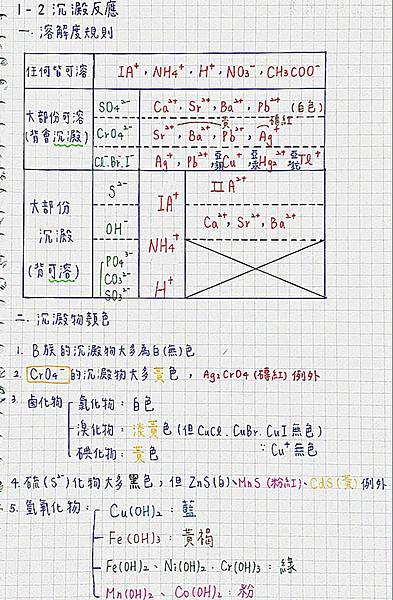 1-2 沉澱反應
一. 溶解度規則
任何皆可溶 IA⁺, NH4⁺, H⁺, NO3⁻, CH3COO⁻
大部份可溶 (背會沉澱) SO4²⁻ Ca²⁺, Sr²⁺, Ba²⁺, Pb²⁺ (白色)
黃 磚紅
CrO4²⁻ Sr²⁺, Ba²⁺, Pb²⁺, Ag⁺
Cl⁻ Br⁻ I⁻ Ag⁺, Pb²⁺ 亞銅Cu⁺ 亞汞Hg2²⁺ 亞鉈Tl⁺
大部份沉澱 (背可溶) S²⁻ IA⁺ NH4⁺ H⁺ ⅡA²⁺
OH⁻ Ca²⁺, Sr²⁺, Ba²⁺
PO4³⁻
CO3²⁻
SO3²⁻
二. 沉澱物顏色
1. B族的沉澱物大多為白(無)色
2. CrO4⁻ 的沉澱物大多黃色, Ag2CrO4 (磚紅) 例外
3. 鹵化物 氯化物: 白色
溴化物: 淡黃色 (但 CuCl. CuBr. CuI 無色)
碘化物: 黃色 ∵ Cu⁺ 無色
4. 硫(S²⁻)化物大多黑色, 但 ZnS(白)、MnS (粉紅)、CdS (黃) 例外
5. 氫氧化物: Cu(OH)2: 藍
Fe(OH)3: 黃褐
Fe(OH)2、Ni(OH)2. Cr(OH)3: 綠
Mn(OH)2、Co(OH)2: 粉